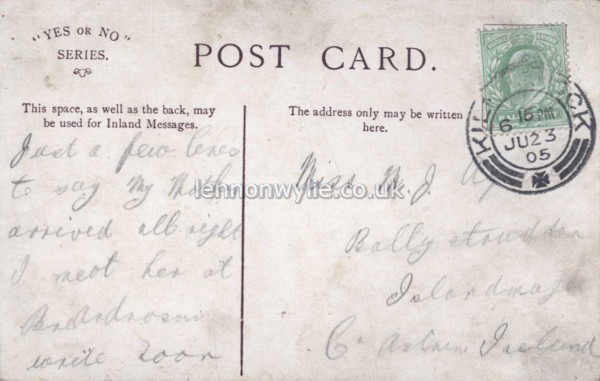 "YES OR NO"
SERIES.
POST CARD.
This space, as well as the back, may
be used for Inland Messages.
The address only may be written
here.
KILMARNOCK
6 15 PM
JU 23
05
lennonwylie.co.uk
Just a few lines
to say My Mother
arrived all right
I meet her at
Ardrossan
write soon
Miss M. J.
Ballystrudder
Islandmagee
Co Ireland